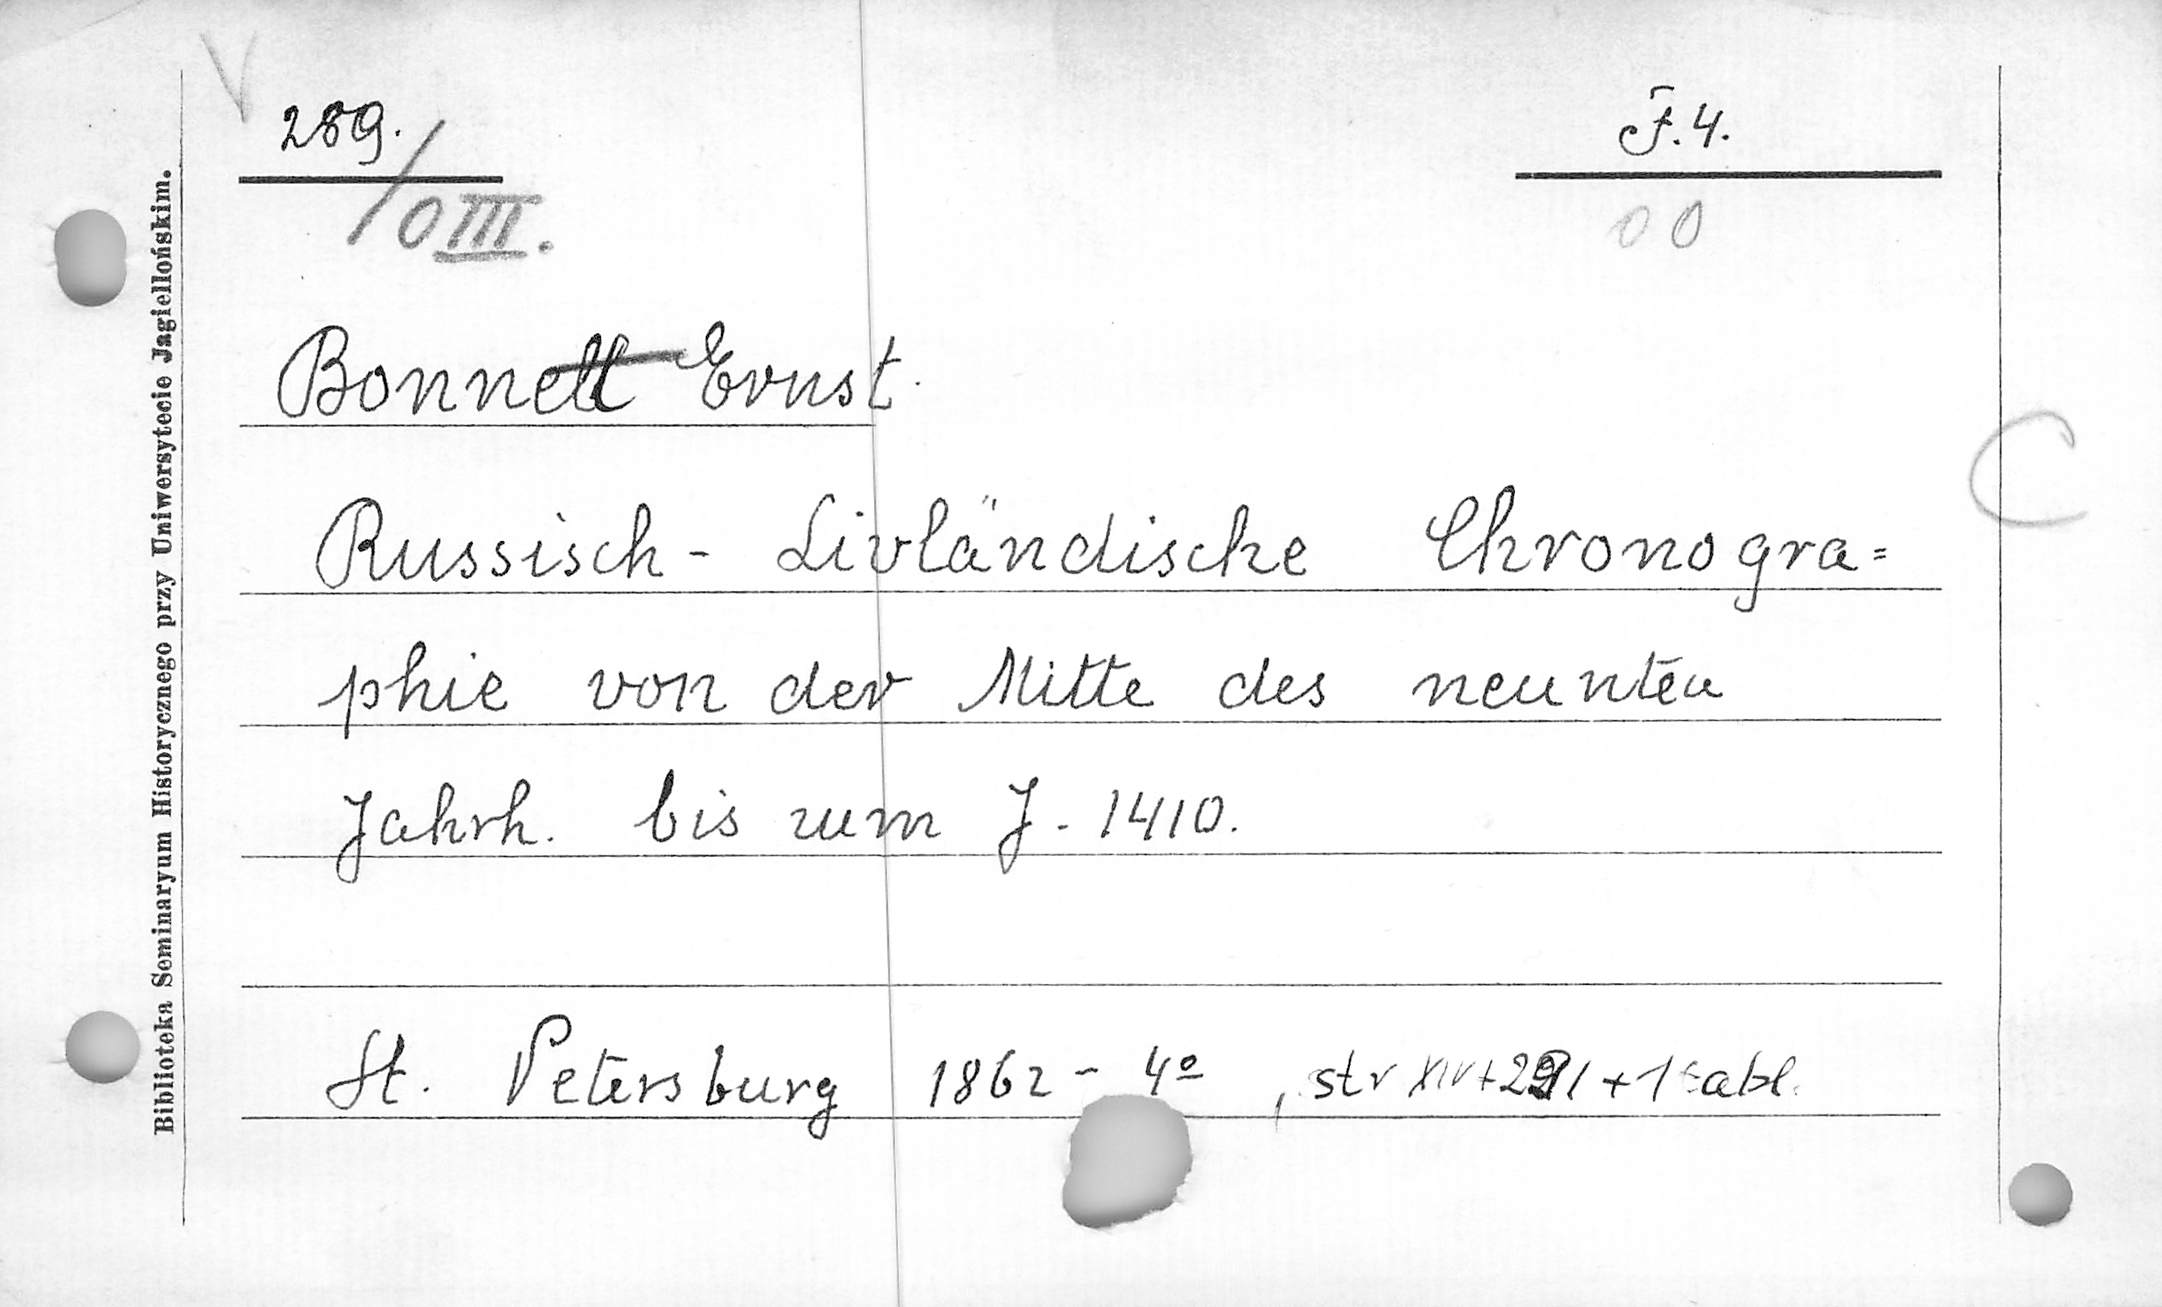 V
289. F. 4.
/ O III. 0 0
Bonnett Ernst.
Russisch - Livländische Chronogra=
phie von der Mitte des neunten
Jahrh. bis zum J. 1410.
C
St. Petersburg 1862 - 4º , str XIV + 291 + 1 tabl.
Biblioteka Seminaryum Historycznego przy Uniwersytecie Jagiellońskim.